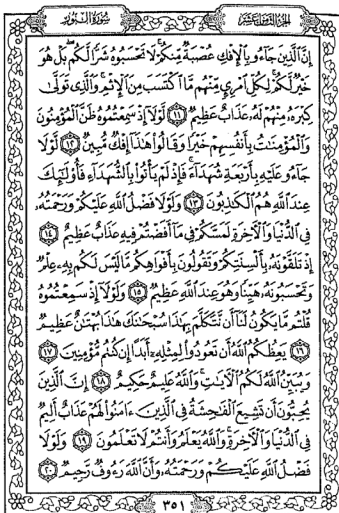 سُورَةُ النُّورِ
الجُزْءُ الثَّامِنَ عَشَرَ
إِنَّ الَّذِينَ جَاءُو بِالْإِفْكِ عُصْبَةٌ مِّنكُمْ لَا تَحْسَبُوهُ شَرًّا لَّكُم بَلْ هُوَ
خَيْرٌ لَّكُمْ لِكُلِّ امْرِئٍ مِّنْهُم مَّا اكْتَسَبَ مِنَ الْإِثْمِ وَالَّذِي تَوَلَّى
كِبْرَهُ مِنْهُمْ لَهُ عَذَابٌ عَظِيمٌ ١١ لَّوْلَا إِذْ سَمِعْتُمُوهُ ظَنَّ الْمُؤْمِنُونَ
وَالْمُؤْمِنَاتُ بِأَنفُسِهِمْ خَيْرًا وَقَالُوا هَٰذَا إِفْكٌ مُّبِينٌ ١٢ لَّوْلَا
جَاءُو عَلَيْهِ بِأَرْبَعَةِ شُهَدَاءَ فَإِذْ لَمْ يَأْتُوا بِالشُّهَدَاءِ فَأُولَٰئِكَ
عِندَ اللَّهِ هُمُ الْكَاذِبُونَ ١٣ وَلَوْلَا فَضْلُ اللَّهِ عَلَيْكُمْ وَرَحْمَتُهُ
فِي الدُّنْيَا وَالْآخِرَةِ لَمَسَّكُمْ فِي مَا أَفَضْتُمْ فِيهِ عَذَابٌ عَظِيمٌ ١٤
إِذْ تَلَقَّوْنَهُ بِأَلْسِنَتِكُمْ وَتَقُولُونَ بِأَفْوَاهِكُم مَّا لَيْسَ لَكُم بِهِ عِلْمٌ
وَتَحْسَبُونَهُ هَيِّنًا وَهُوَ عِندَ اللَّهِ عَظِيمٌ ١٥ وَلَوْلَا إِذْ سَمِعْتُمُوهُ
قُلْتُم مَّا يَكُونُ لَنَا أَن نَّتَكَلَّمَ بِهَٰذَا سُبْحَانَكَ هَٰذَا بُهْتَانٌ عَظِيمٌ
١٦ يَعِظُكُمُ اللَّهُ أَن تَعُودُوا لِمِثْلِهِ أَبَدًا إِن كُنتُم مُّؤْمِنِينَ ١٧
وَيُبَيِّنُ اللَّهُ لَكُمُ الْآيَاتِ وَاللَّهُ عَلِيمٌ حَكِيمٌ ١٨ إِنَّ الَّذِينَ
يُحِبُّونَ أَن تَشِيعَ الْفَاحِشَةُ فِي الَّذِينَ آمَنُوا لَهُمْ عَذَابٌ أَلِيمٌ
فِي الدُّنْيَا وَالْآخِرَةِ وَاللَّهُ يَعْلَمُ وَأَنتُمْ لَا تَعْلَمُونَ ١٩ وَلَوْلَا
فَضْلُ اللَّهِ عَلَيْكُمْ وَرَحْمَتُهُ وَأَنَّ اللَّهَ رَءُوفٌ رَّحِيمٌ ٢٠
٣٥١